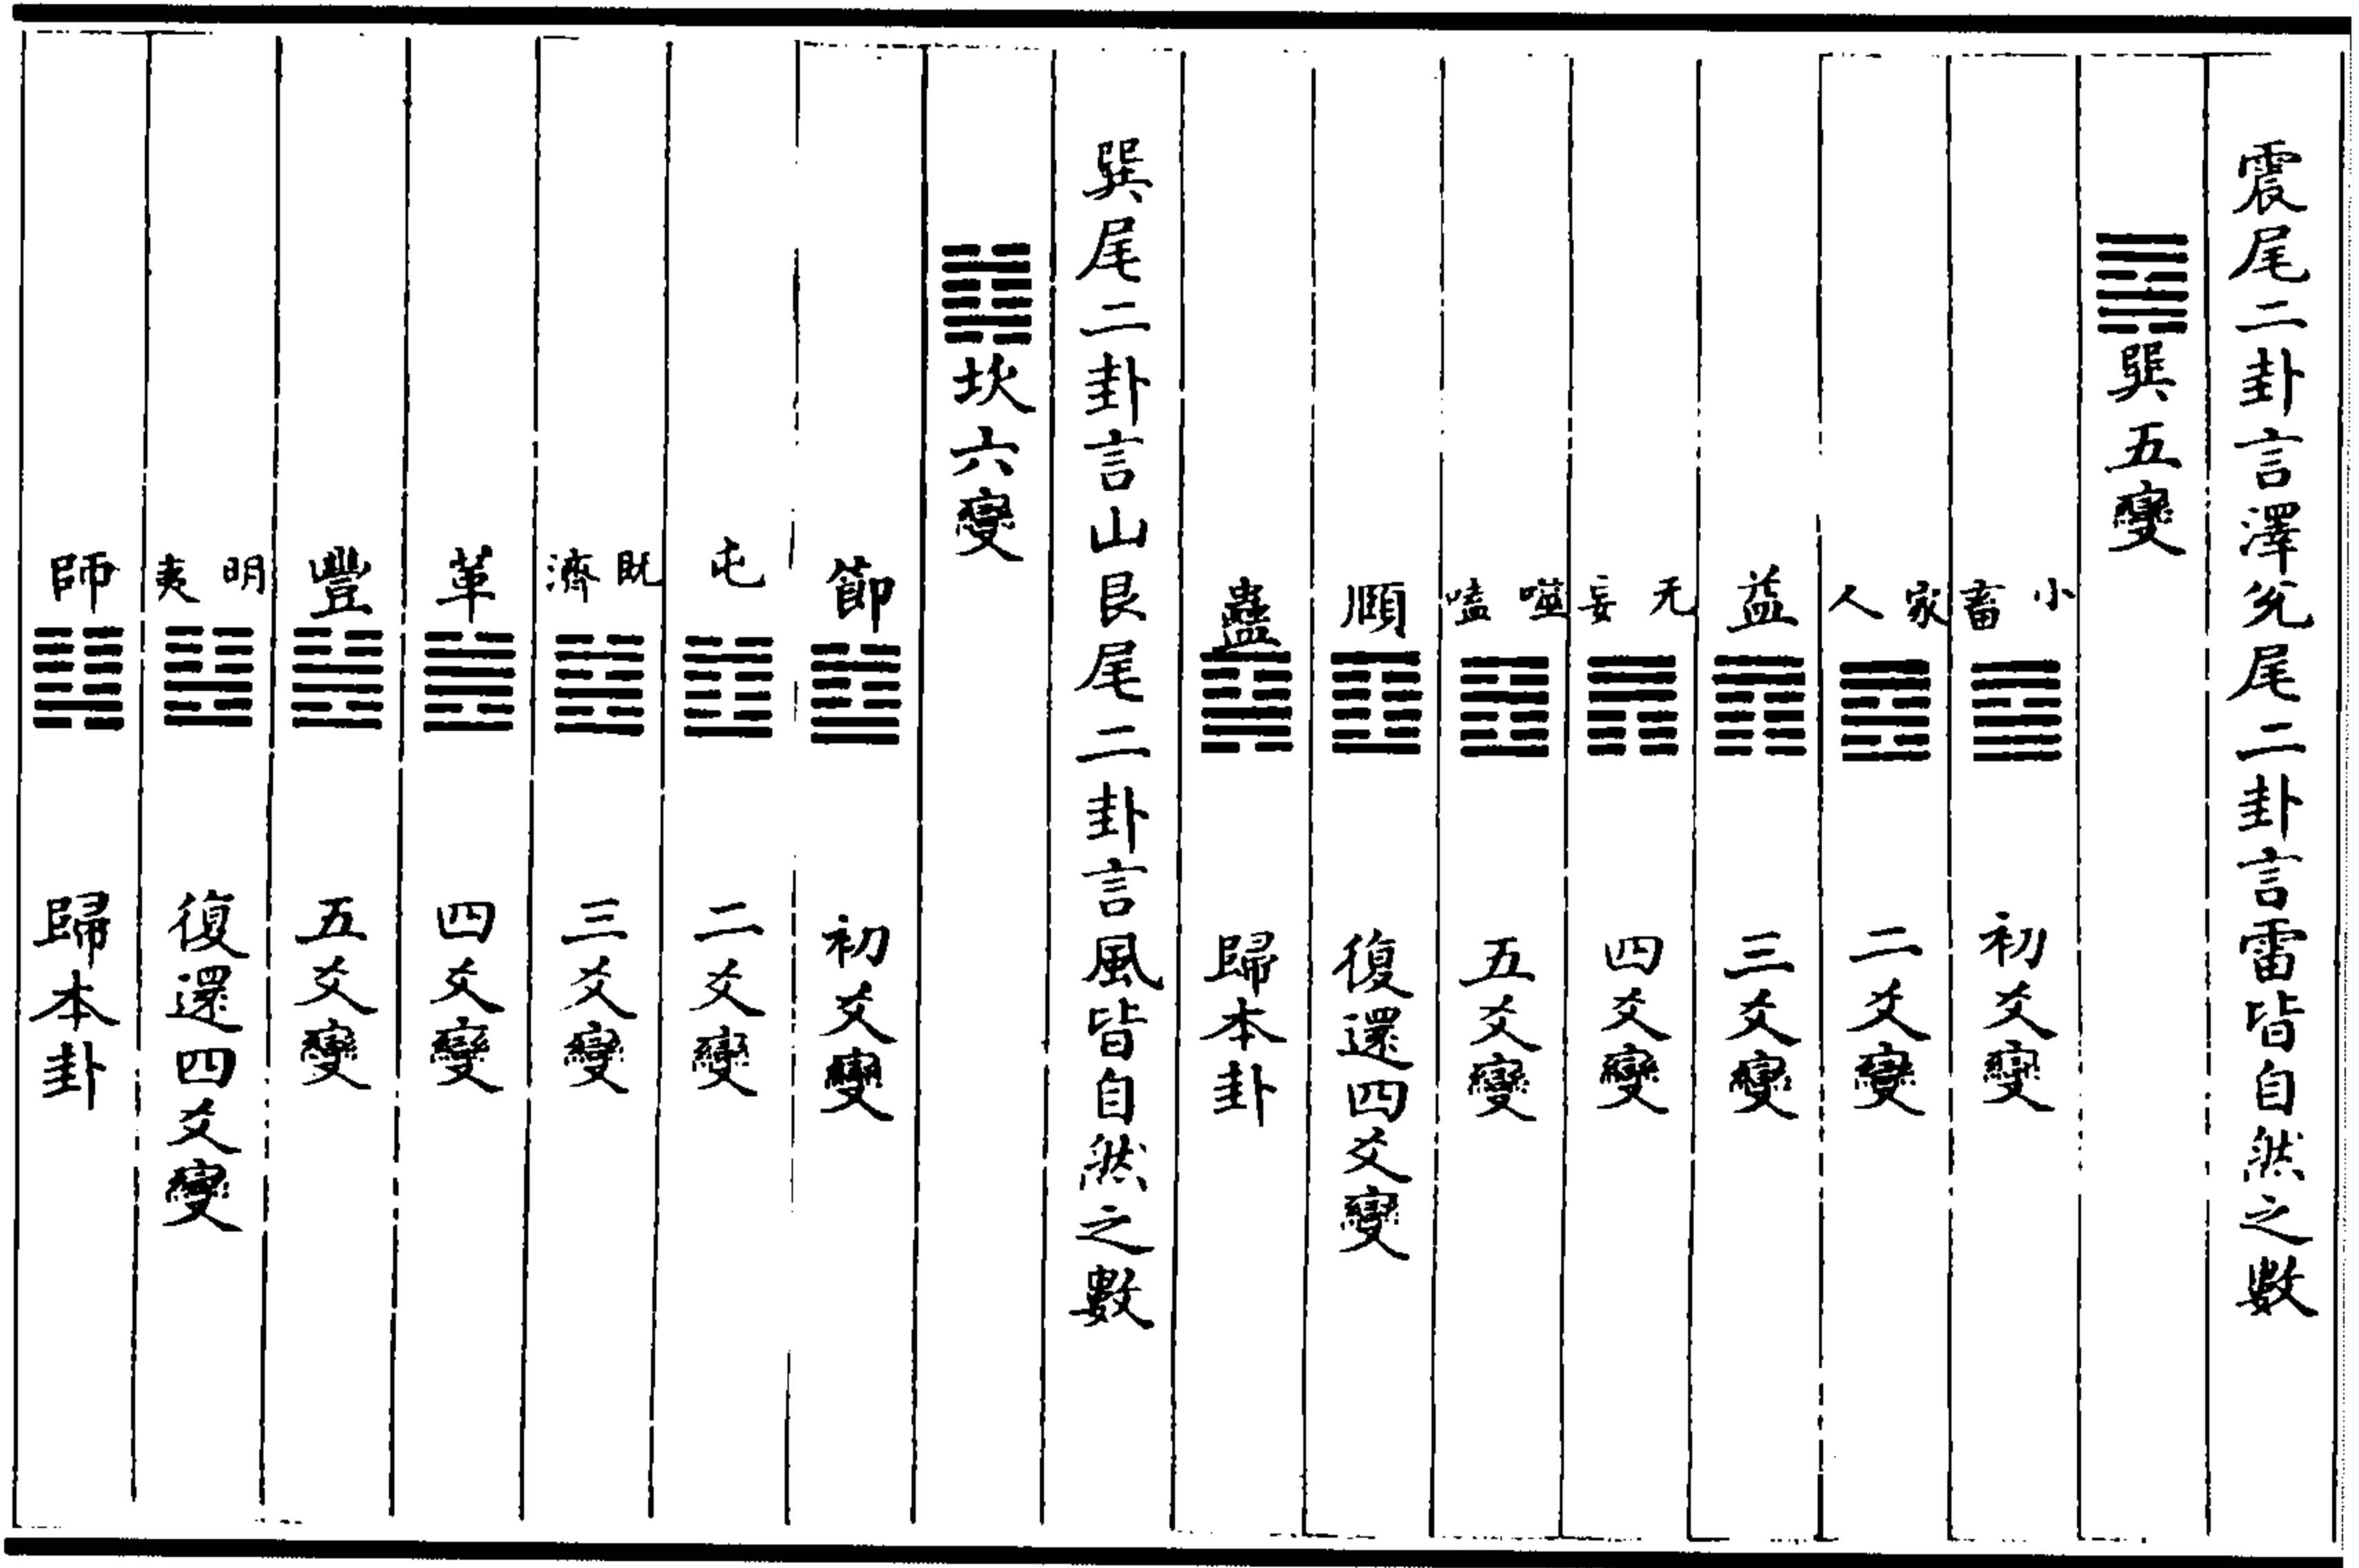 震尾二卦言澤兌尾二卦言雷皆自然之數
䷸巽五變
小畜䷈初爻變
家人䷤二爻變
益䷩三爻變
无妄䷘四爻變
噬嗑䷔五爻變
頤䷚復還四爻變
蠱䷑歸本卦
巽尾二卦言山艮尾二卦言風皆自然之數
䷜坎六變
節䷻初爻變
屯䷂二爻變
既濟䷾三爻變
革䷰四爻變
豐䷶五爻變
明夷䷣復還四爻變
師䷆歸本卦